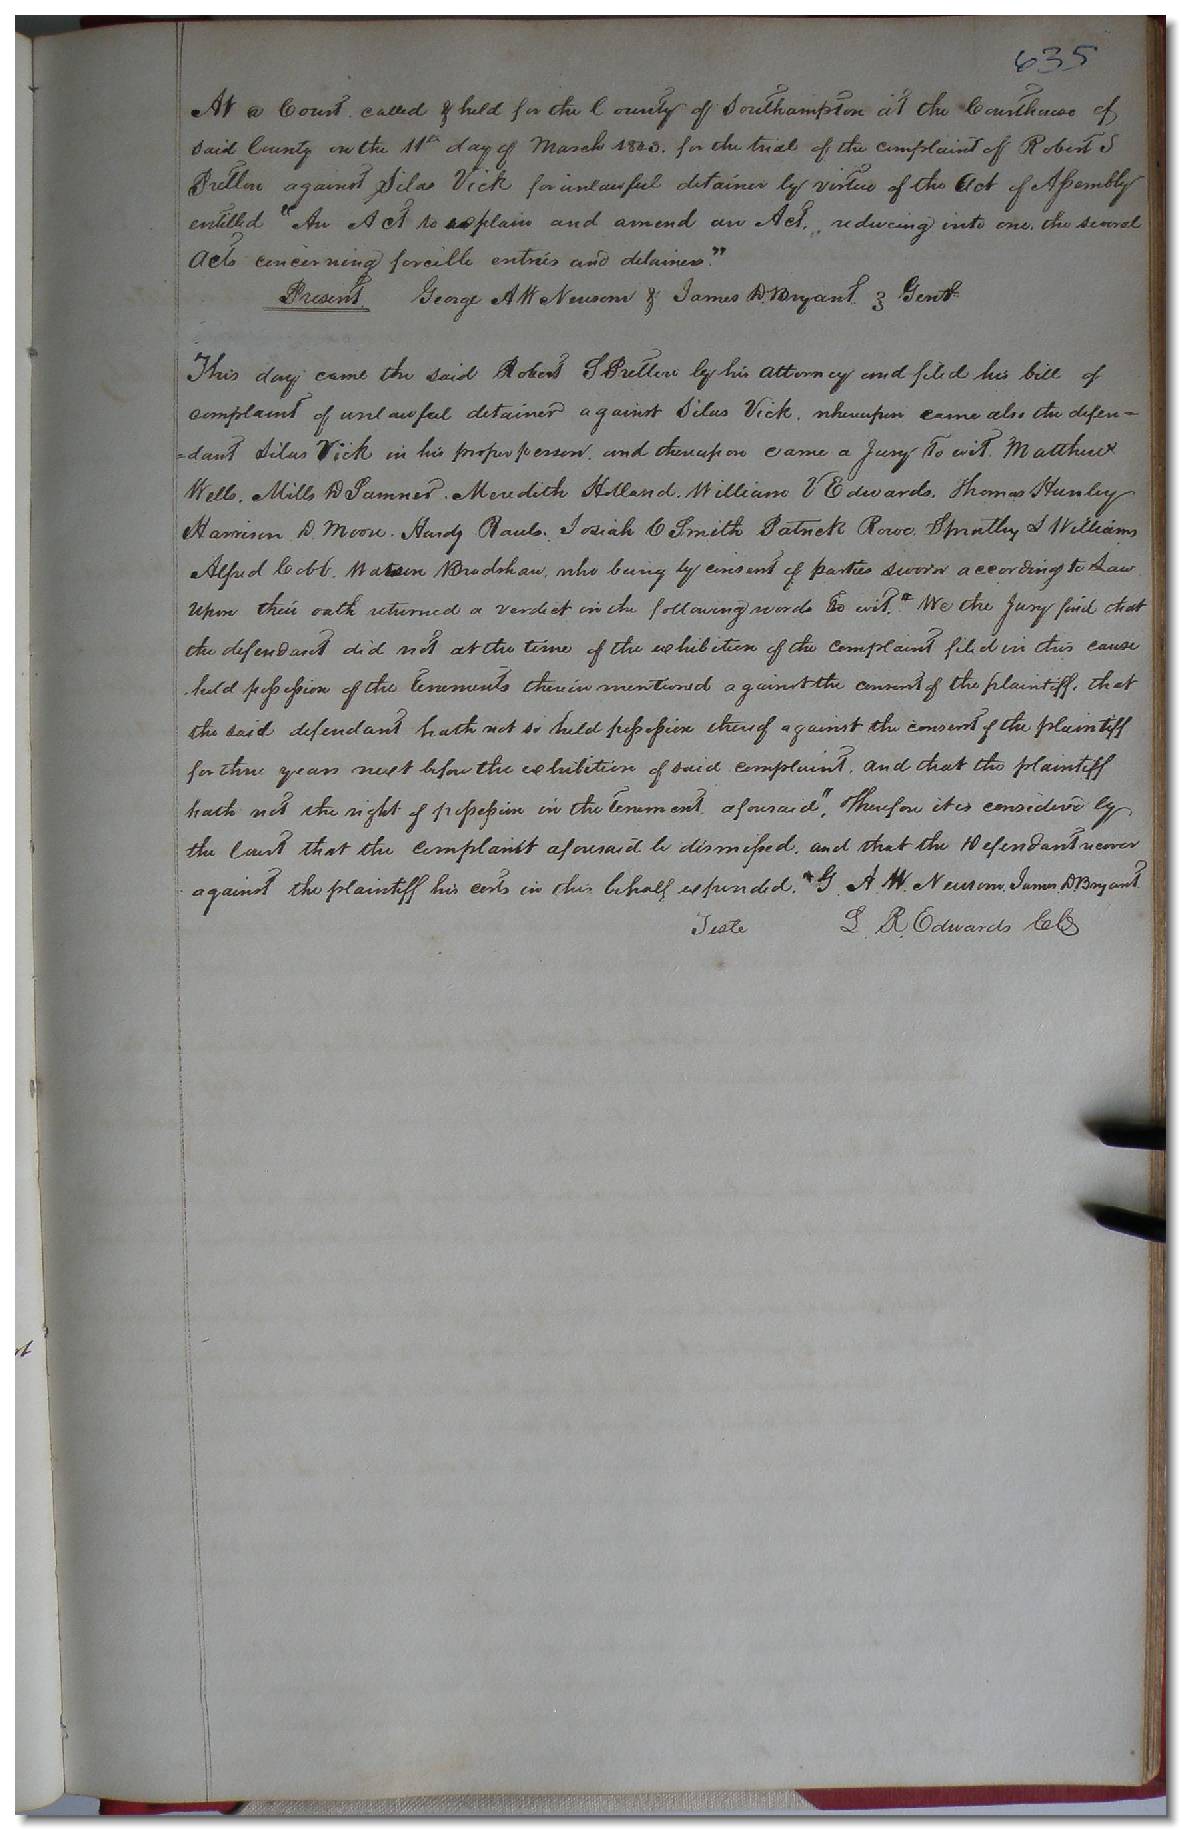 635
At a Court called & held for the County of Southampton at the Courthouse of
said County on the 11th day of March 1843. for the trial of the complaint of Robert S
Pretlow against Silas Vick for unlawful detainer by virtue of the Act of Assembly
entitled "An Act to explain and amend an Act, reducing into one, the several
Acts concerning forcible entries and detainers."
Present George A W Newsom & James D. Bryant } Gent
This day came the said Robert S Pretlow by his attorney and filed his bill of
complaint of unlawful detainer against Silas Vick, whereupon came also the defen=
=dant Silas Vick in his proper person, and thereupon came a Jury To wit. Matthew
Wells. Mills D Sumner. Meredith Holland. William V Edwards. Thomas Hunley
Harrison D. Moore. Hardy Rauls. Josiah C Smith Patrick Rowe. Spratley S Williams
Alfred Cobb. Watson Bradshaw, who being by consent of parties sworn according to Law
upon their oath returned a verdict in the following words to wit. "We the Jury find that
the defendant did not at the time of the exhibition of the complaint filed in this cause
hold possession of the tenements therein mentioned against the consent of the plaintiff, that
the said defendant hath not so held possession thereof against the consent of the plaintiff
for three years next before the exhibition of said complaint, and that the plaintiff
hath not the right of possession in the tenement aforesaid", Therefore it is considered by
the Court that the complaint aforesaid be dismissed, and that the Defendant recover
against the plaintiff his costs in this behalf expended. G. A. W. Newsom. James D Bryant
Teste L. R. Edwards CC